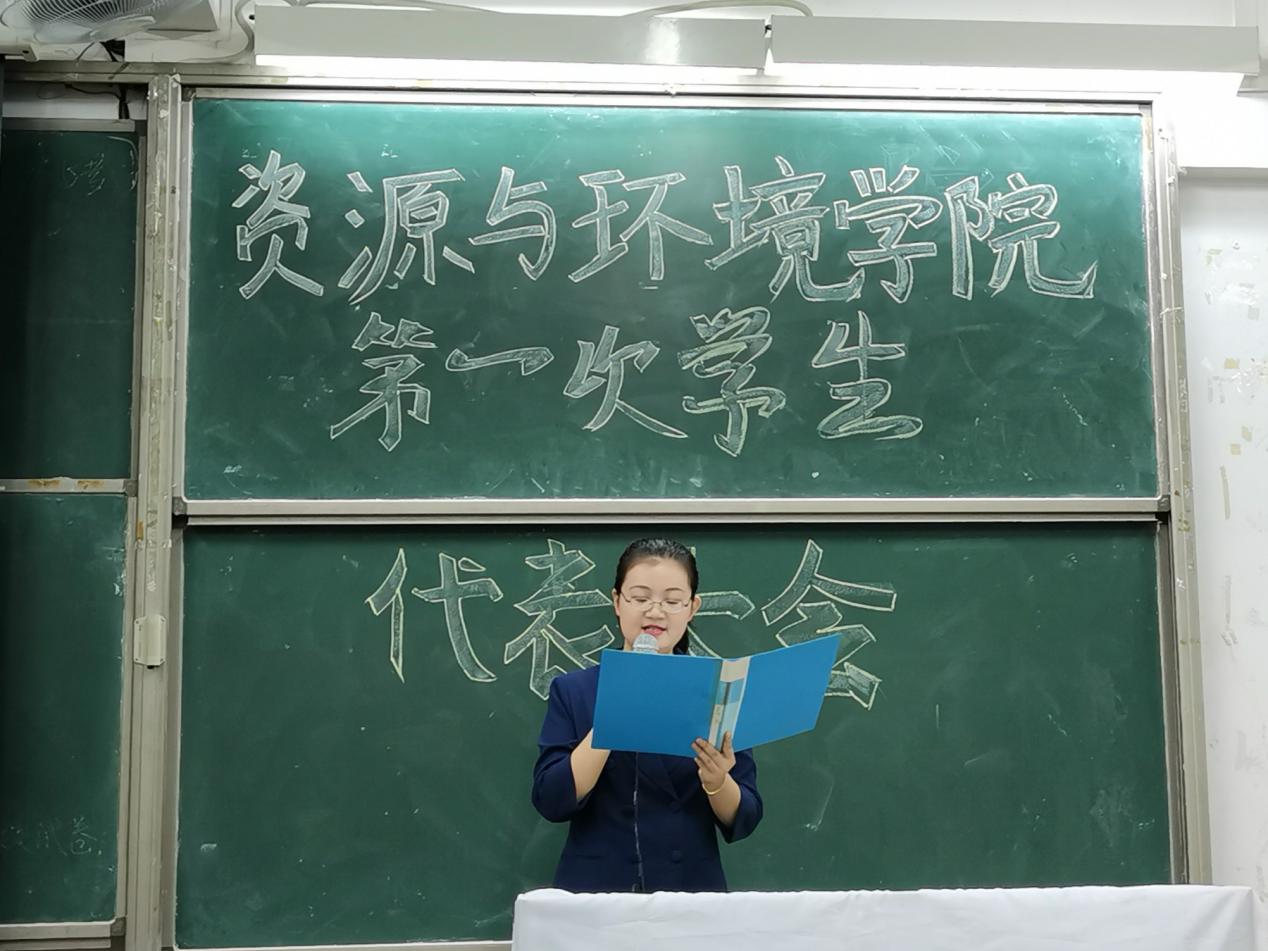 资源与环境学院
第一次学生
代表大会